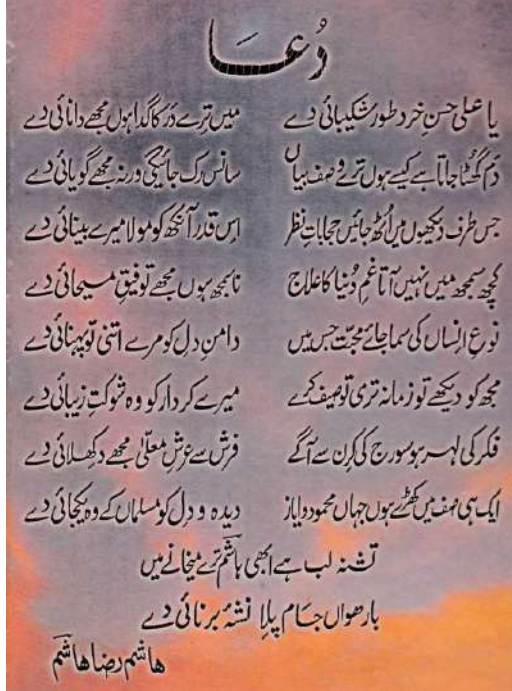 دُعا
یا علی حسنِ خرد طور شکیبائی دے میں ترے در کا گدا ہوں مجھے دانائی دے
دم گھٹا جاتا ہے کیسے ہوں ترے وصف بیاں سانس رک جائیگی ورنہ مجھے گویائی دے
جس طرف دیکھوں میں اُٹھ جائیں حجاباتِ نظر اِس قدر آنکھ کو مولا میرے بینائی دے
کچھ سمجھ میں نہیں آتا غمِ دُنیا کا علاج ناسمجھ ہوں مجھے توفیقِ مسیحائی دے
نوعِ انساں کی سما جائے محبّت جس میں دامنِ دل کو مرے اتنی تو پہنائی دے
مجھ کو دیکھے تو زمانہ تری توصیف کرے میرے کردار کو وہ شوکتِ زیبائی دے
فکر کی لہر ہو سورج کی کرن سے آگے فرش سے عرشِ معلّیٰ مجھے دکھلائی دے
ایک ہی صف میں کھڑے ہوں جہاں محمود و ایاز دیدہ و دل کو مسلماں کے وہ یکجائی دے
تشنہ لب ہے ابھی ہاشم ترے میخانے میں
بارھواں جام پلا نشۂ برنائی دے
ھاشم رضا ھاشم